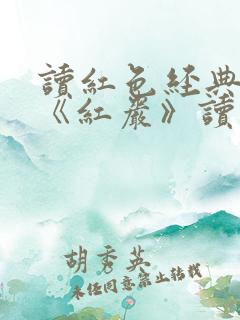 讀紅色經典
《紅巖》讀
胡秀英
未经同意禁止转载